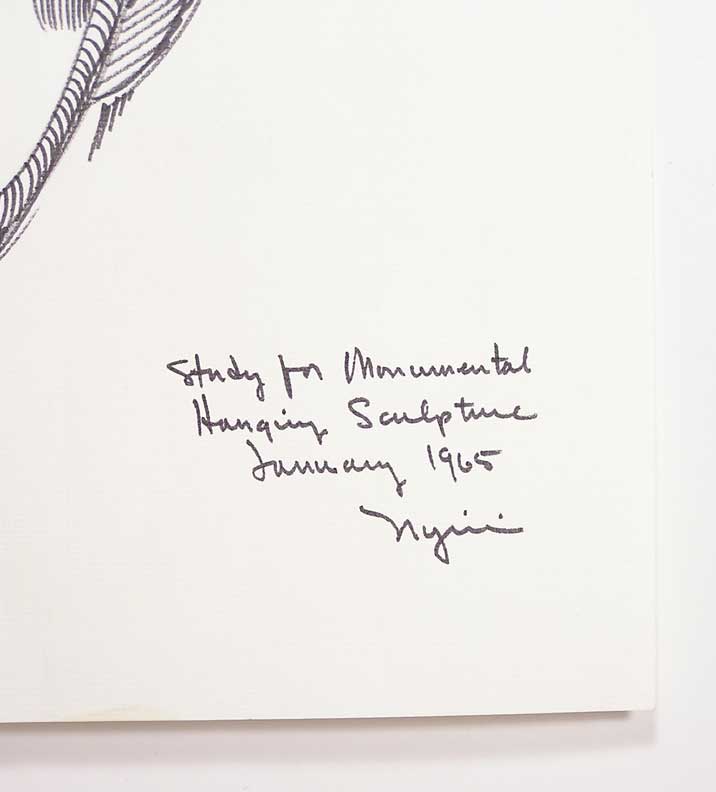 Study for Monumental
Hanging Sculpture
January 1965